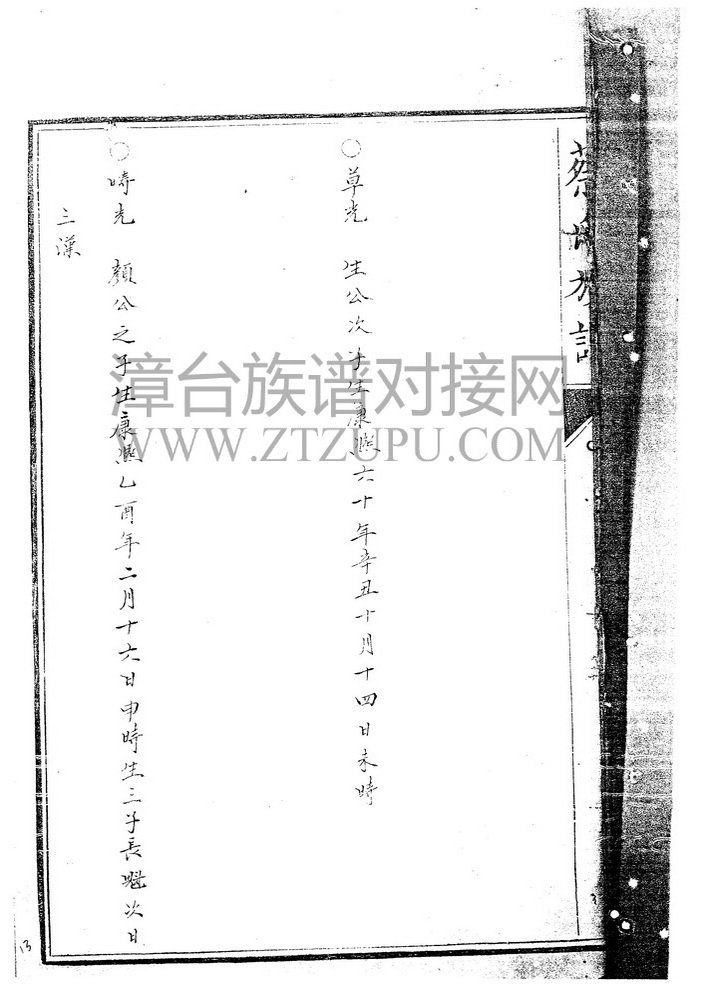 〇草光 生公次子生康熙六十年辛丑十月十四日未時
〇時光 顏公之子生康熙乙酉年二月十六日申時生三子長魁次日
三漢
漳台族谱对接网
WWW.ZTZUPU.COM
13